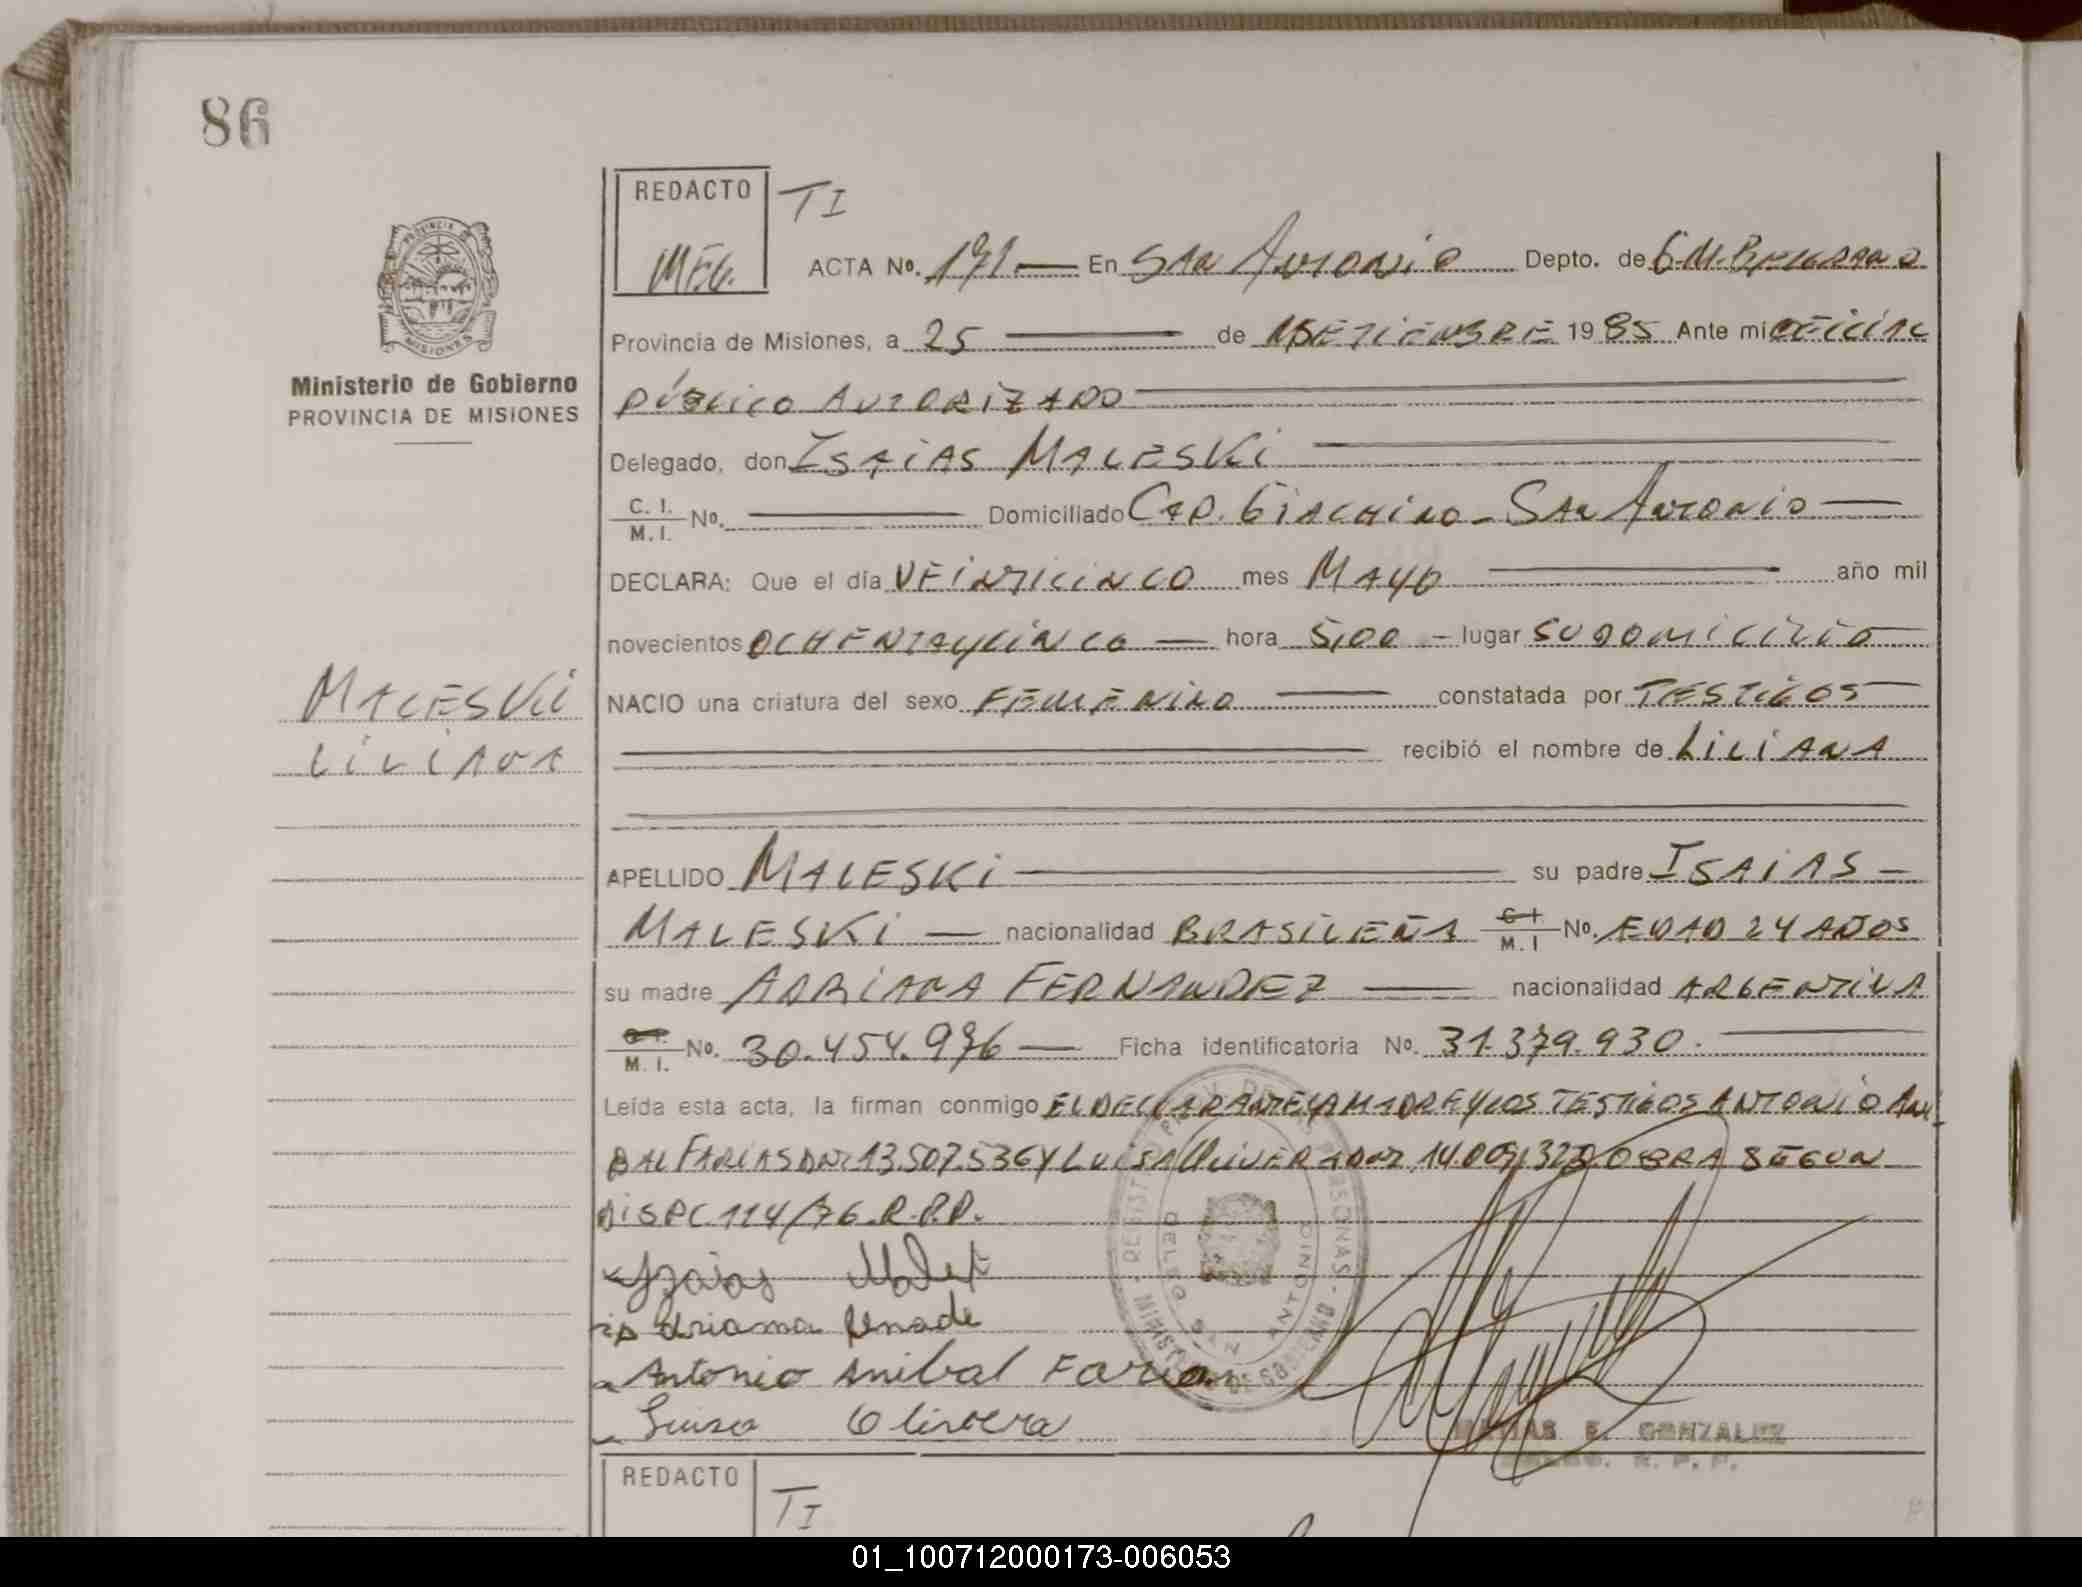 86
REDACTO
TI
MEG.
ACTA No. 191 En SAN ANTONIO Depto. de G.M. BELGRANO
PROVINCIA DE
MISIONES
Ministerio de Gobierno
PROVINCIA DE MISIONES
Provincia de Misiones, a 25 de SETIEMBRE 1985 Ante mi OFICIAL
PÚBLICO AUTORIZADO
Delegado, don ISAIAS MALESKI
C. I.
M. I. No. Domiciliado CAP. GIACHINO - SAN ANTONIO
DECLARA: Que el día VEINTICINCO mes MAYO año mil
novecientos OCHENTAYCINCO hora 5,00 lugar SU DOMICILIO
MALESKI
LILIANA
NACIO una criatura del sexo FEMENINO constatada por TESTIGOS
recibió el nombre de LILIANA
APELLIDO MALESKI su padre ISAIAS
MALESKI nacionalidad BRASILEÑA C I M. I No. EDAD 24 AÑOS
su madre ADRIANA FERNANDEZ nacionalidad ARGENTINA
M. I. No. 30.454.976 Ficha identificatoria No. 31.379.930.
Leída esta acta, la firman conmigo EL DECLARANTE LA MADRE Y LOS TESTIGOS ANTONIO ANI-
BAL FARIAS DNI 13.507.536 Y LUISA OLIVERA DNI 14.009.323 OBRA SEGUN
DISPC 114/76 R.P.P.
Izaias
Antonio Anibal Farias
Luisa Olivera
REGISTRO PROV. DE LAS PERSONAS
MINISTERIO DE GOBIERNO
DELEG. SAN ANTONIO
E. GONZALEZ
R. P. P.
REDACTO
TI
01_100712000173-006053